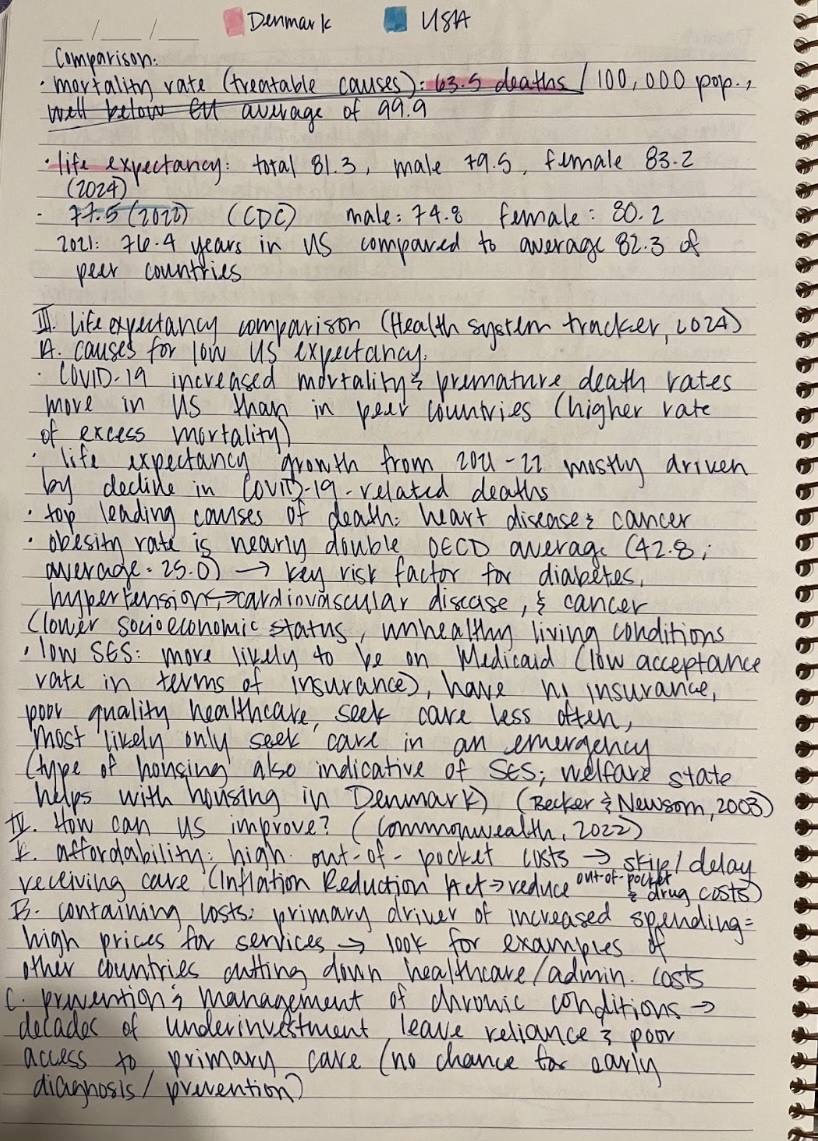 __/__/__ Denmark USA
Comparison:
· mortality rate (treatable causes): 63.5 deaths / 100,000 pop.,
well below EU average of 99.9
· life expectancy: total 81.3, male 79.5, female 83.2
(2024)
· 77.5 (2022) (CDC) male: 74.8 female: 80.2
2021: 76.4 years in US compared to average 82.3 of
peer countries
III. life expectancy comparison (Health system tracker, 2024)
A. causes for low US expectancy:
· COVID-19 increased mortality & premature death rates
more in US than in peer countries (higher rate
of excess mortality)
· life expectancy growth from 2021-22 mostly driven
by decline in COVID-19-related deaths
· top leading causes of death: heart disease & cancer
· obesity rate is nearly double OECD average (42.8;
average = 25.0) → key risk factor for diabetes,
hypertension, → cardiovascular disease, & cancer
(lower socioeconomic status, unhealthy living conditions
· low SES: more likely to be on Medicaid (low acceptance
rate in terms of insurance), have no insurance,
poor quality healthcare, seek care less often,
most likely only seek care in an emergency
(type of housing also indicative of SES; welfare state
helps with housing in Denmark) (Becker & Newsom, 2003)
IV. How can US improve? (Commonwealth, 2022)
A. affordability: high out-of-pocket costs → skip/delay
receiving care (Inflation Reduction Act → reduce out-of-pocket & drug costs)
B. containing costs: primary driver of increased spending =
high prices for services → look for examples of
other countries cutting down healthcare/admin. costs
C. prevention & management of chronic conditions →
decades of underinvestment leave reliance & poor
access to primary care (no chance for early
diagnosis/prevention)